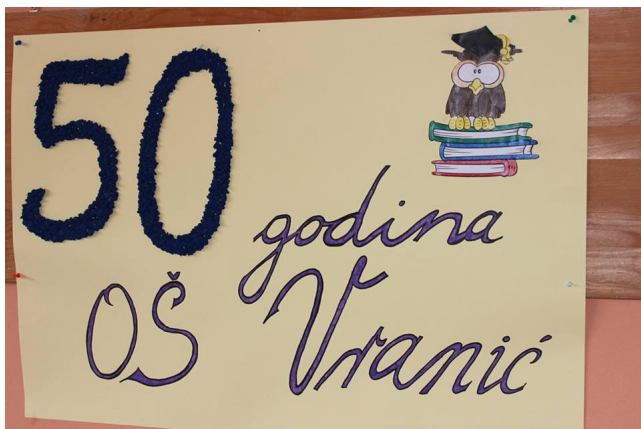 50
godina
OŠ Vranić